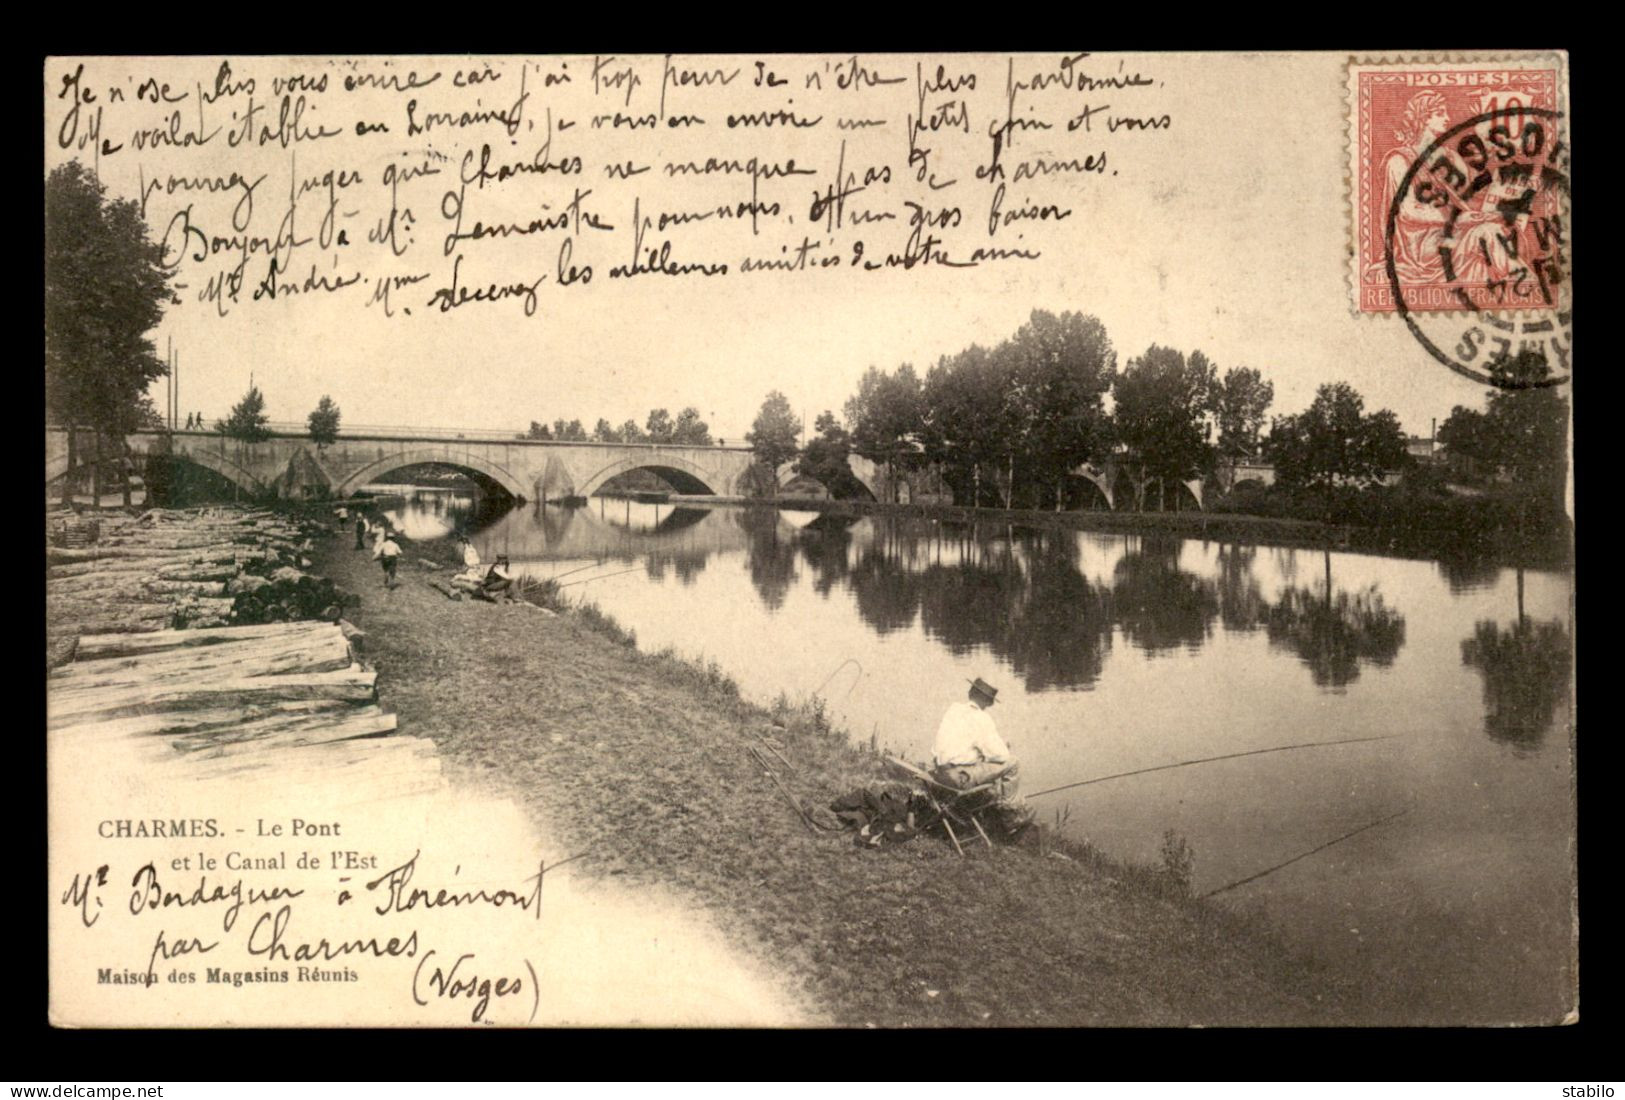 Je n'ose plus vous écrire car j'ai trop peur de n'être plus pardonnée.
Me voila établie en Lorraine, je vous en envoie un petit coin et vous
pourrez juger que Charmes ne manque pas de charmes.
Bonjour à Mr. Lemaistre pour nous. Et un gros baiser
à Mr. André. Mme. recevez les meilleures amitiés de votre amie
POSTES
10
REPUBLIQUE FRANÇAISE
VOSGES
24 MAI
CHARMES. - Le Pont
et le Canal de l'Est
Mr. Bordaguer à Florémont
par Charmes
Maison des Magasins Réunis
(Vosges)
stabilo
© delcampe.net